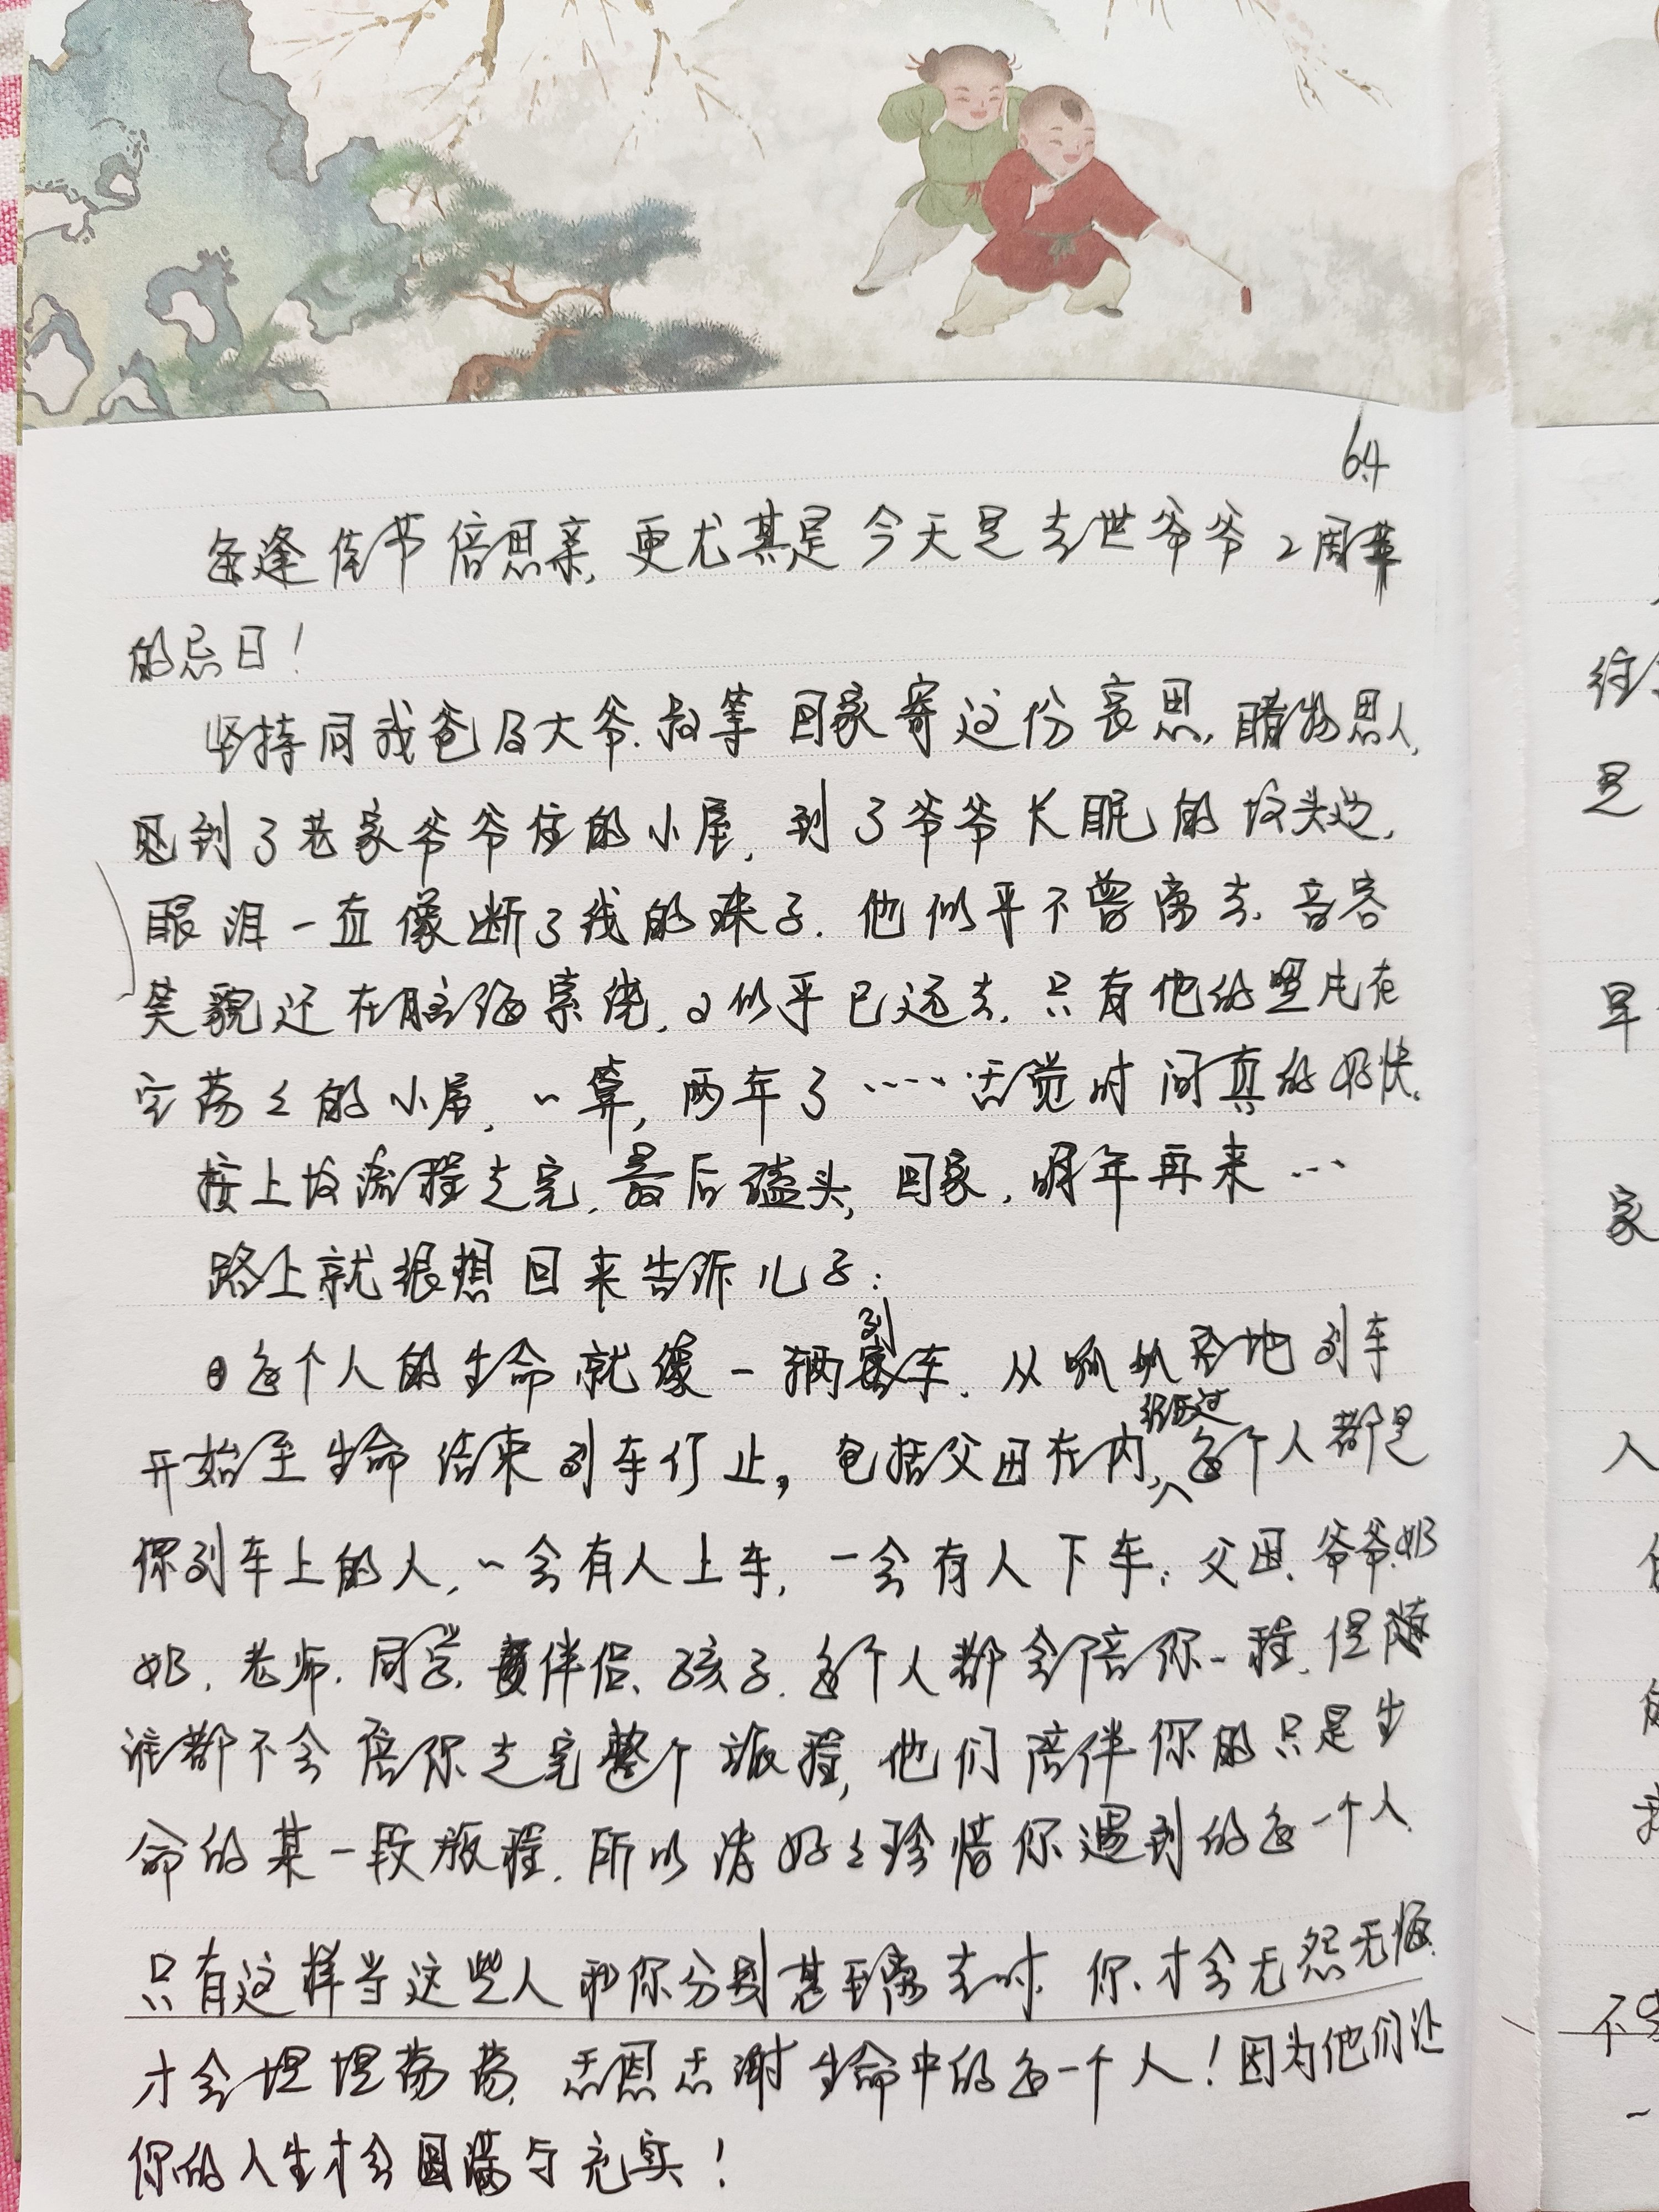 6.4
每逢佳节倍思亲,更尤其是今天是去世爷爷2周年
的忌日!
坚持同我爸及大爷.叔等回家寄这份哀思,睹物思人,
见到了老家爷爷住的小屋,到了爷爷长眠的坟头边,
眼泪一直像断了线的珠子.他似乎不曾离去.音容
笑貌还在脑海萦绕,又似乎已远去.只有他的照片在
空荡々的小屋,一算,两年了……感觉时间真的好快。
按上坟流程走完.最后磕头,回家,明年再来…
路上就很想回来告诉儿子:
每个人的生命就像一辆列车.从呱呱坠地列车
开始至生命结束列车停止。包括父母在内,经过每个人都是
你列车上的人,一会有人上车,一会有人下车;父母.爷爷.奶
奶.老师.同学.伴侣、孩子.每个人都会陪你一程.但随
谁都不会陪你走完整个旅程,他们陪伴你的只是生
命的某一段旅程.所以请好々珍惜你遇到的每一个人
只有这样当这些人和你分别甚至离去时.你.才会无怨无悔.
才会坦坦荡荡,感恩感谢生命中的每一个人!因为他们让
你的人生才会圆满与充实!
往
是
早
家
入
不
一